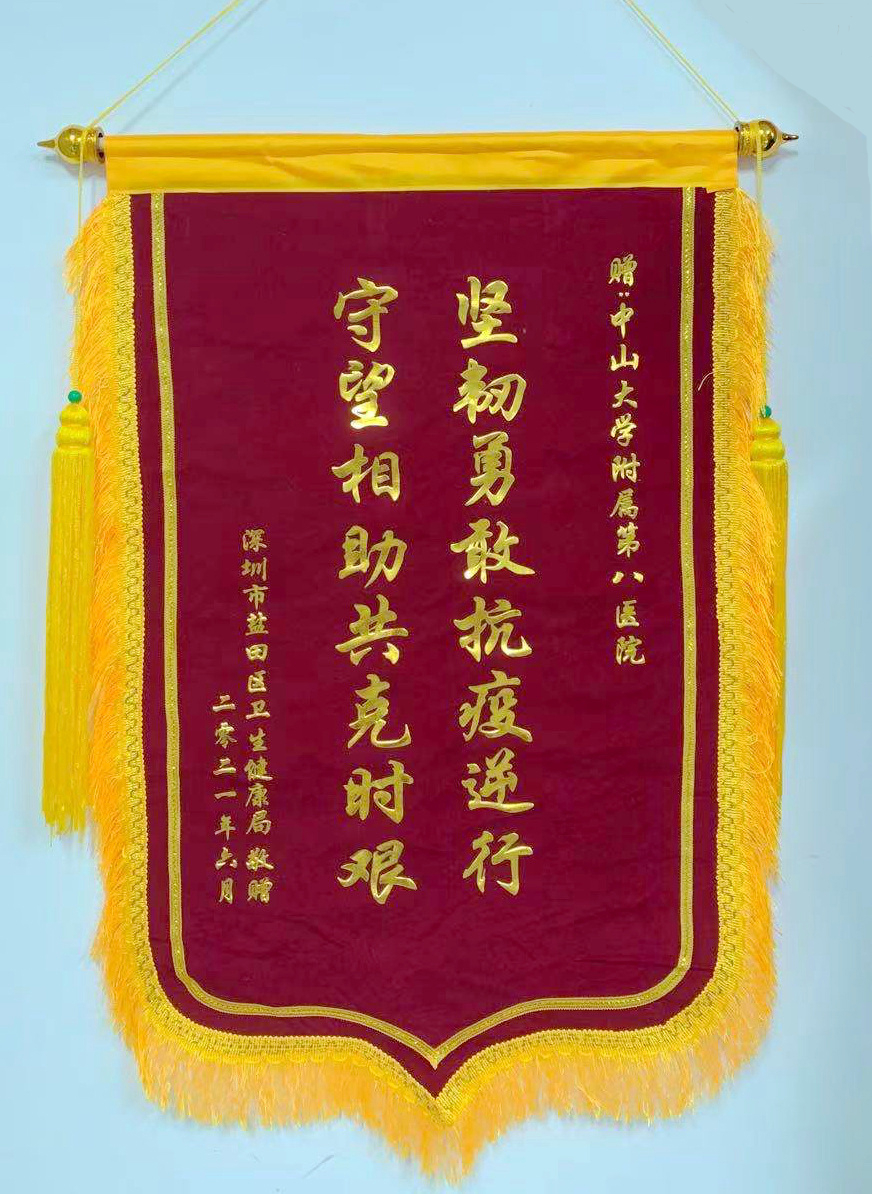 赠:中山大学附属第八医院
坚韧勇敢抗疫逆行
守望相助共克时艰
深圳市盐田区卫生健康局 敬赠
二零二一年六月